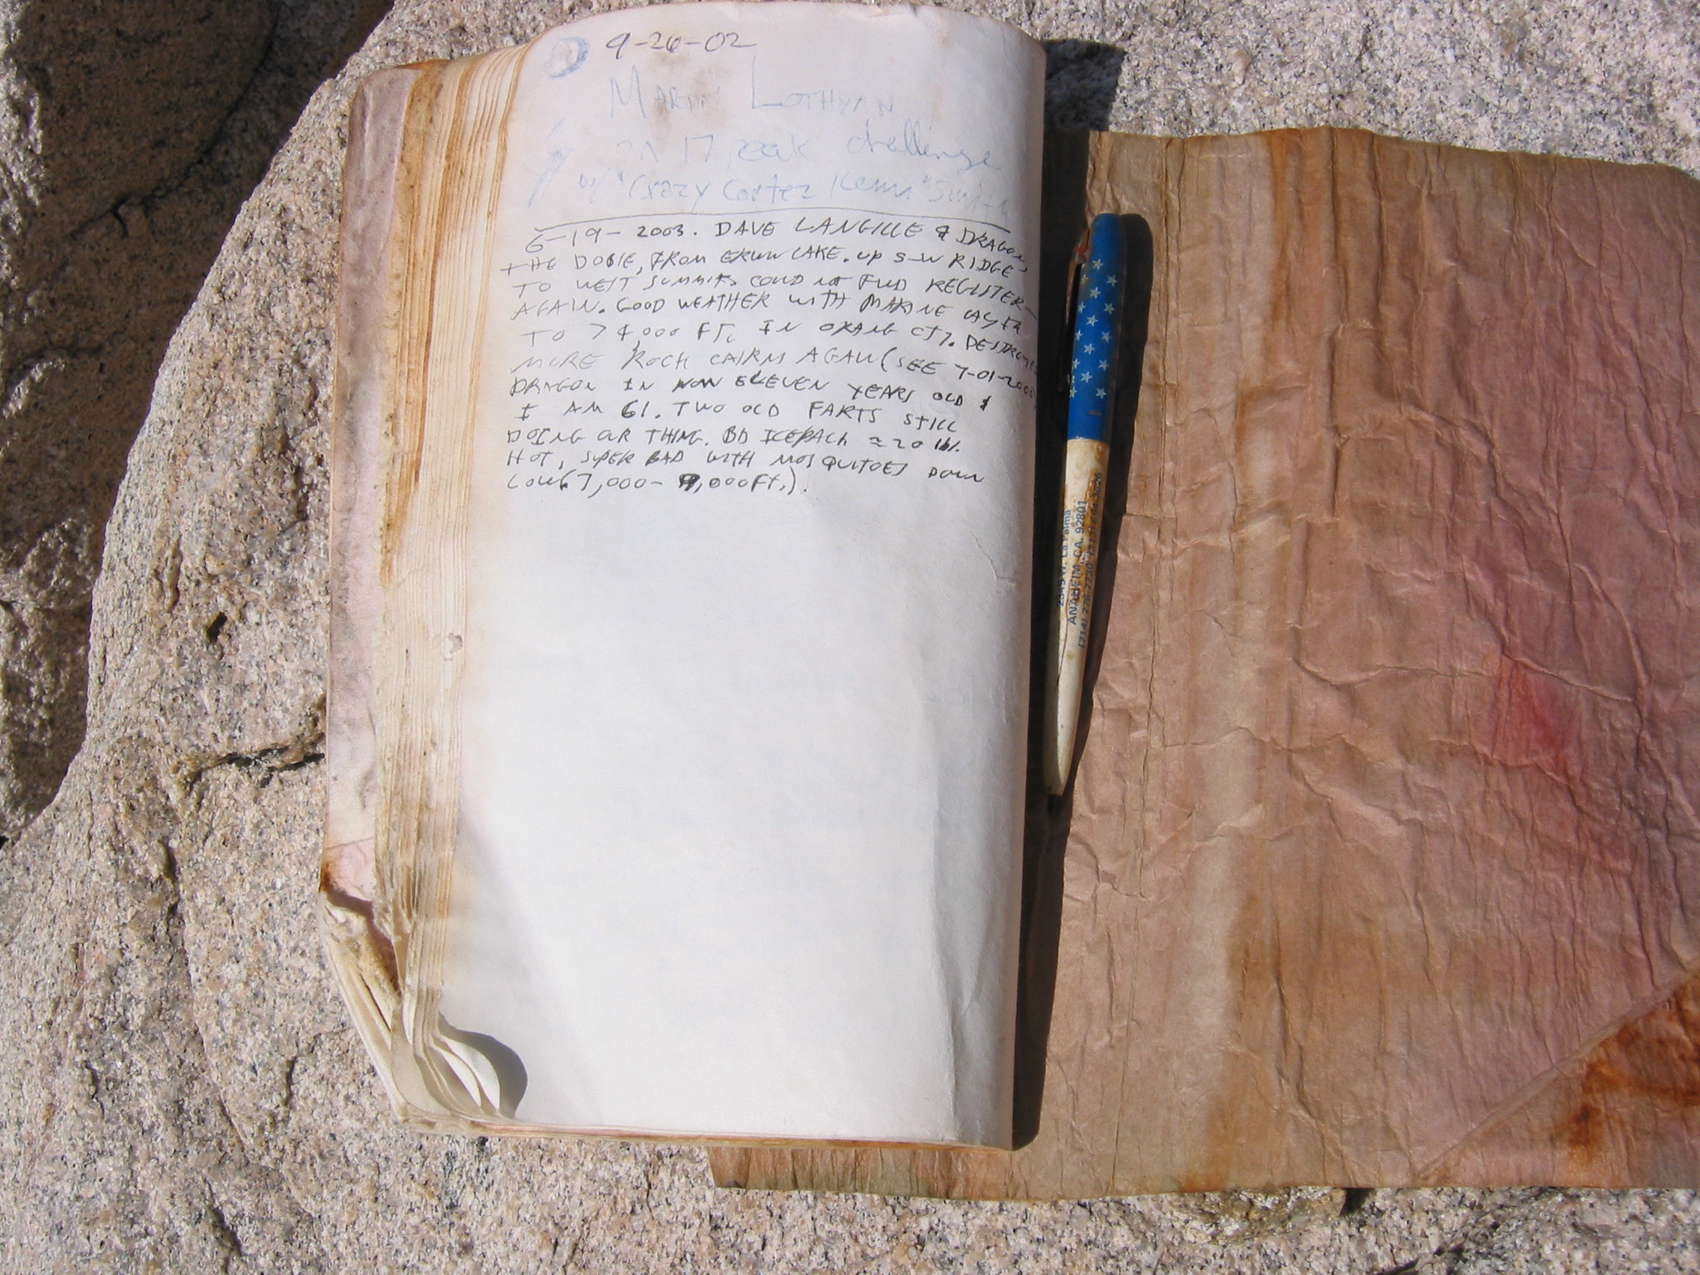 9-26-02
Martin Lothyan
on 17 peak challenge
w/ "Crazy Carter Kenn"
6-19-2003. DAVE LANGILLE & DRAGON,
THE DOBIE, FROM ERWIN LAKE. UP S-W RIDGE
TO WEST SUMMIT. COULD NOT FIND REGISTER
AGAIN. GOOD WEATHER WITH MARINE LAYER
TO > 4,000 FT. IN ORANG CTY. DESTROYED
MORE ROCK CAIRNS AGAIN (SEE 7-01-
DRAGON IN NOW ELEVEN YEARS OLD &
I AM 61. TWO OLD FARTS STILL
DOING OUR THING. BD ICEPACK ≈ 20 lb.
HOT, SUPER BAD WITH MOSQUITOES DOWN
LOW (7,000-9,000 FT.).
W. La Palma
ANAHEIM, CA. 92801